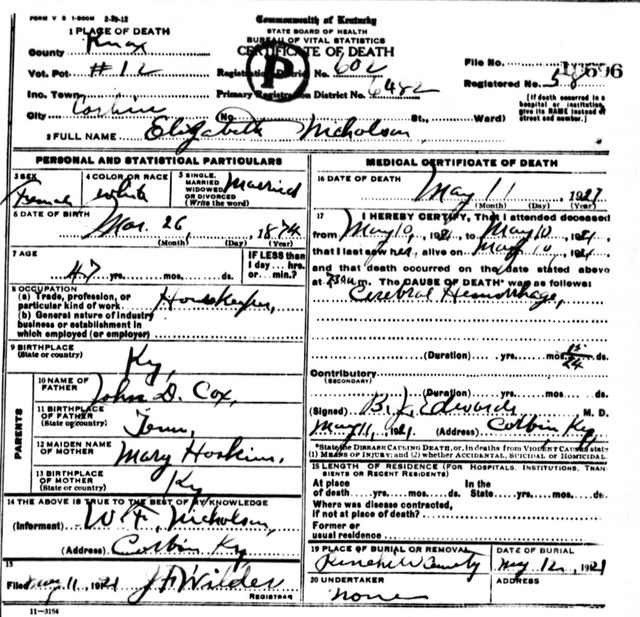 FORM V S 1-500M 2-20-12
Commonwealth of Kentucky
STATE BOARD OF HEALTH
BUREAU OF VITAL STATISTICS
CERTIFICATE OF DEATH
1 PLACE OF DEATH
County Knox
Vot. Pot. #12
Inc. Town
City Corbin
Registration District No. 602
Primary Registration District No. 6482
P
File No. 10696
Registered No. 58
(No. St., Ward)
[If death occurred in a
hospital or institution,
give its NAME instead of
street and number.]
2 FULL NAME Elizabeth Nicholson
PERSONAL AND STATISTICAL PARTICULARS
3 SEX Female
4 COLOR OR RACE White
5 SINGLE, MARRIED WIDOWED OR DIVORCED (Write the word) Married
6 DATE OF BIRTH Mar. 26, 1874
(Month) (Day) (Year)
7 AGE 47 yrs. mos. ds.
IF LESS than
1 day... hrs.
or min.?
8 OCCUPATION
(a) Trade, profession, or
particular kind of work Housekeeper,
(b) General nature of industry
business or establishment in
which employed (or employer)
9 BIRTHPLACE
(State or country) Ky,
PARENTS
10 NAME OF
FATHER John D. Cox,
11 BIRTHPLACE
OF FATHER
(State or country) Tenn,
12 MAIDEN NAME
OF MOTHER Mary Hoskins,
13 BIRTHPLACE
OF MOTHER
(State or country) Ky
14 THE ABOVE IS TRUE TO THE BEST OF MY KNOWLEDGE
(Informant) W. F. Nicholson,
(Address) Corbin Ky
15
Filed May 11, 1921 J F Wilder
REGISTRAR
11-3184
MEDICAL CERTIFICATE OF DEATH
16 DATE OF DEATH
May 11, 1921
(Month) (Day) (Year)
17 I HEREBY CERTIFY, That I attended deceased
from May 10, 1921, to May 10, 1921,
that I last saw her alive on May 10, 1921
and that death occurred on the date stated above
at m. The CAUSE OF DEATH* was as follows:
Cerebral Hemorrhage,
(Duration) yrs. mos. 15/24 ds.
Contributory
(SECONDARY)
(Duration) yrs. mos. ds.
(Signed) B. L. Edwards M. D.
May 11, 1921. (Address) Corbin Ky
*State the DISEASE CAUSING DEATH, or, in deaths from VIOLENT CAUSES state
(1) MEANS OF INJURY; and (2) whether ACCIDENTAL, SUICIDAL or HOMICIDAL.
18 LENGTH OF RESIDENCE (FOR HOSPITALS, INSTITUTIONS, TRANSIENTS OR RECENT RESIDENTS)
At place of death yrs. mos. ds. In the State yrs. mos. ds.
Where was disease contracted,
if not at place of death?
Former or
usual residence
19 PLACE OF BURIAL OR REMOVAL
DATE OF BURIAL
May 12, 1921
20 UNDERTAKER
none
ADDRESS